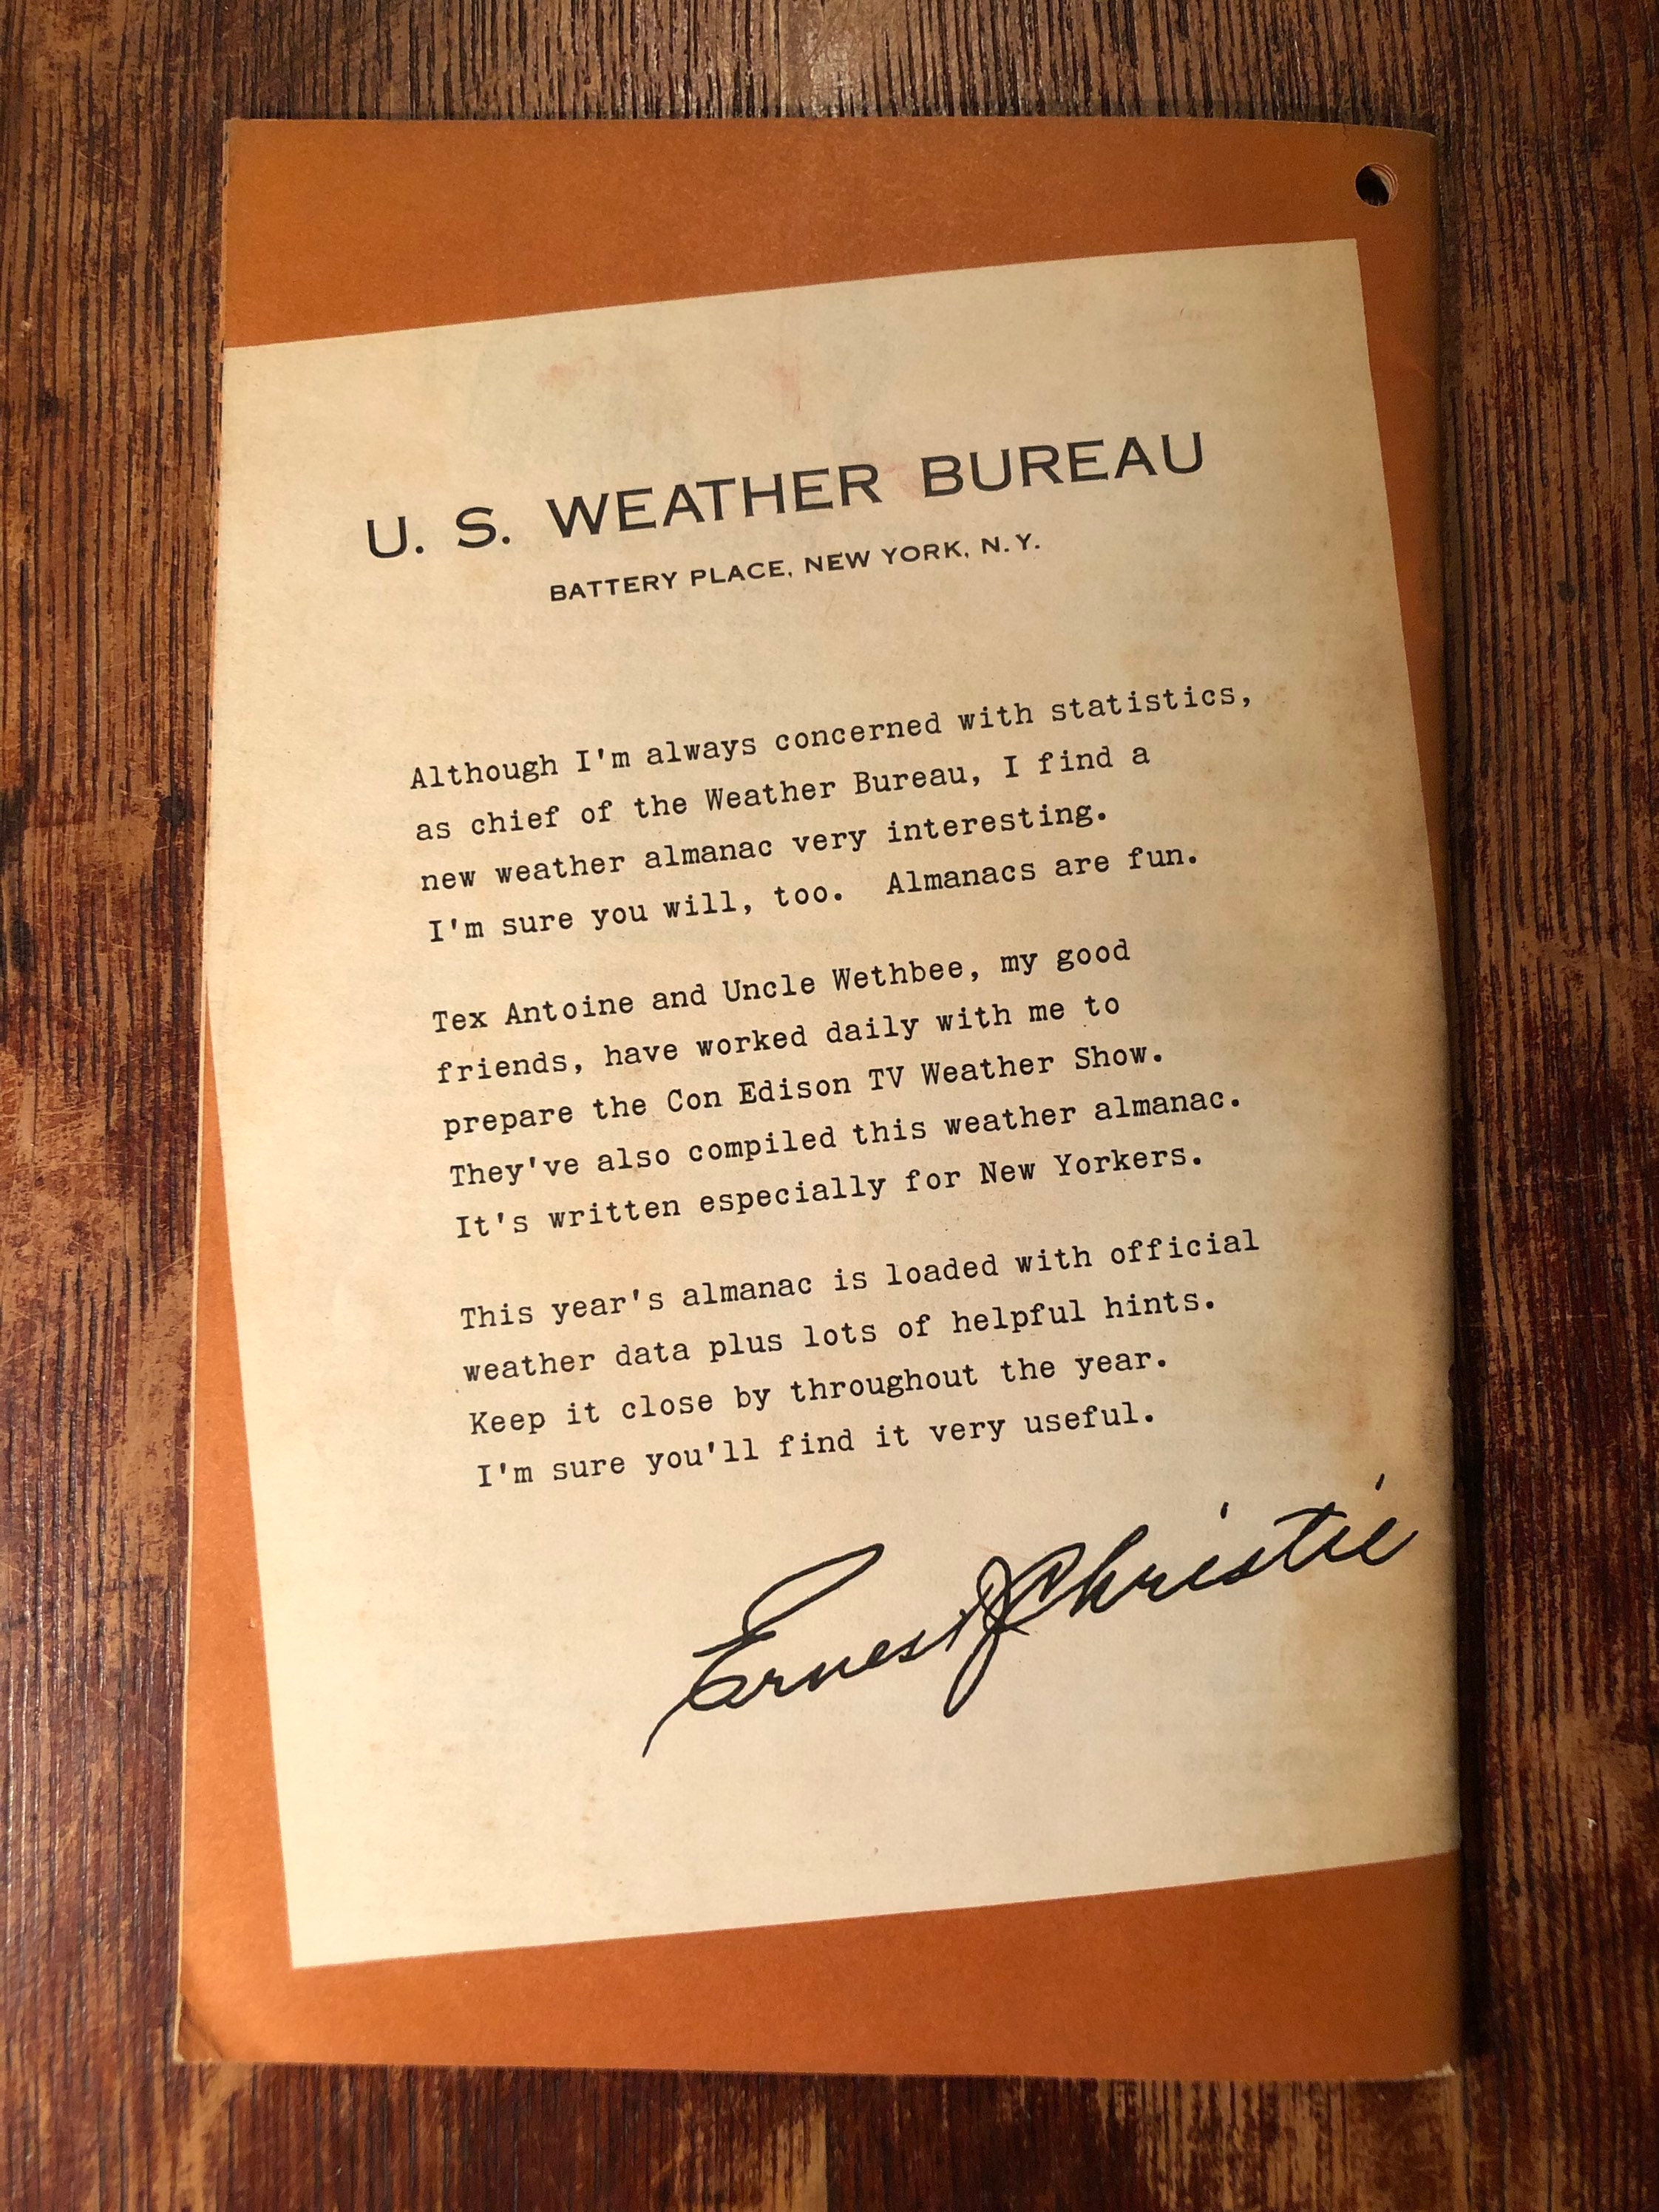 U. S. WEATHER BUREAU
BATTERY PLACE, NEW YORK, N.Y.
Although I'm always concerned with statistics,
as chief of the Weather Bureau, I find a
new weather almanac very interesting.
I'm sure you will, too. Almanacs are fun.
Tex Antoine and Uncle Wethbee, my good
friends, have worked daily with me to
prepare the Con Edison TV Weather Show.
They've also compiled this weather almanac.
It's written especially for New Yorkers.
This year's almanac is loaded with official
weather data plus lots of helpful hints.
Keep it close by throughout the year.
I'm sure you'll find it very useful.
Ernest J Christie